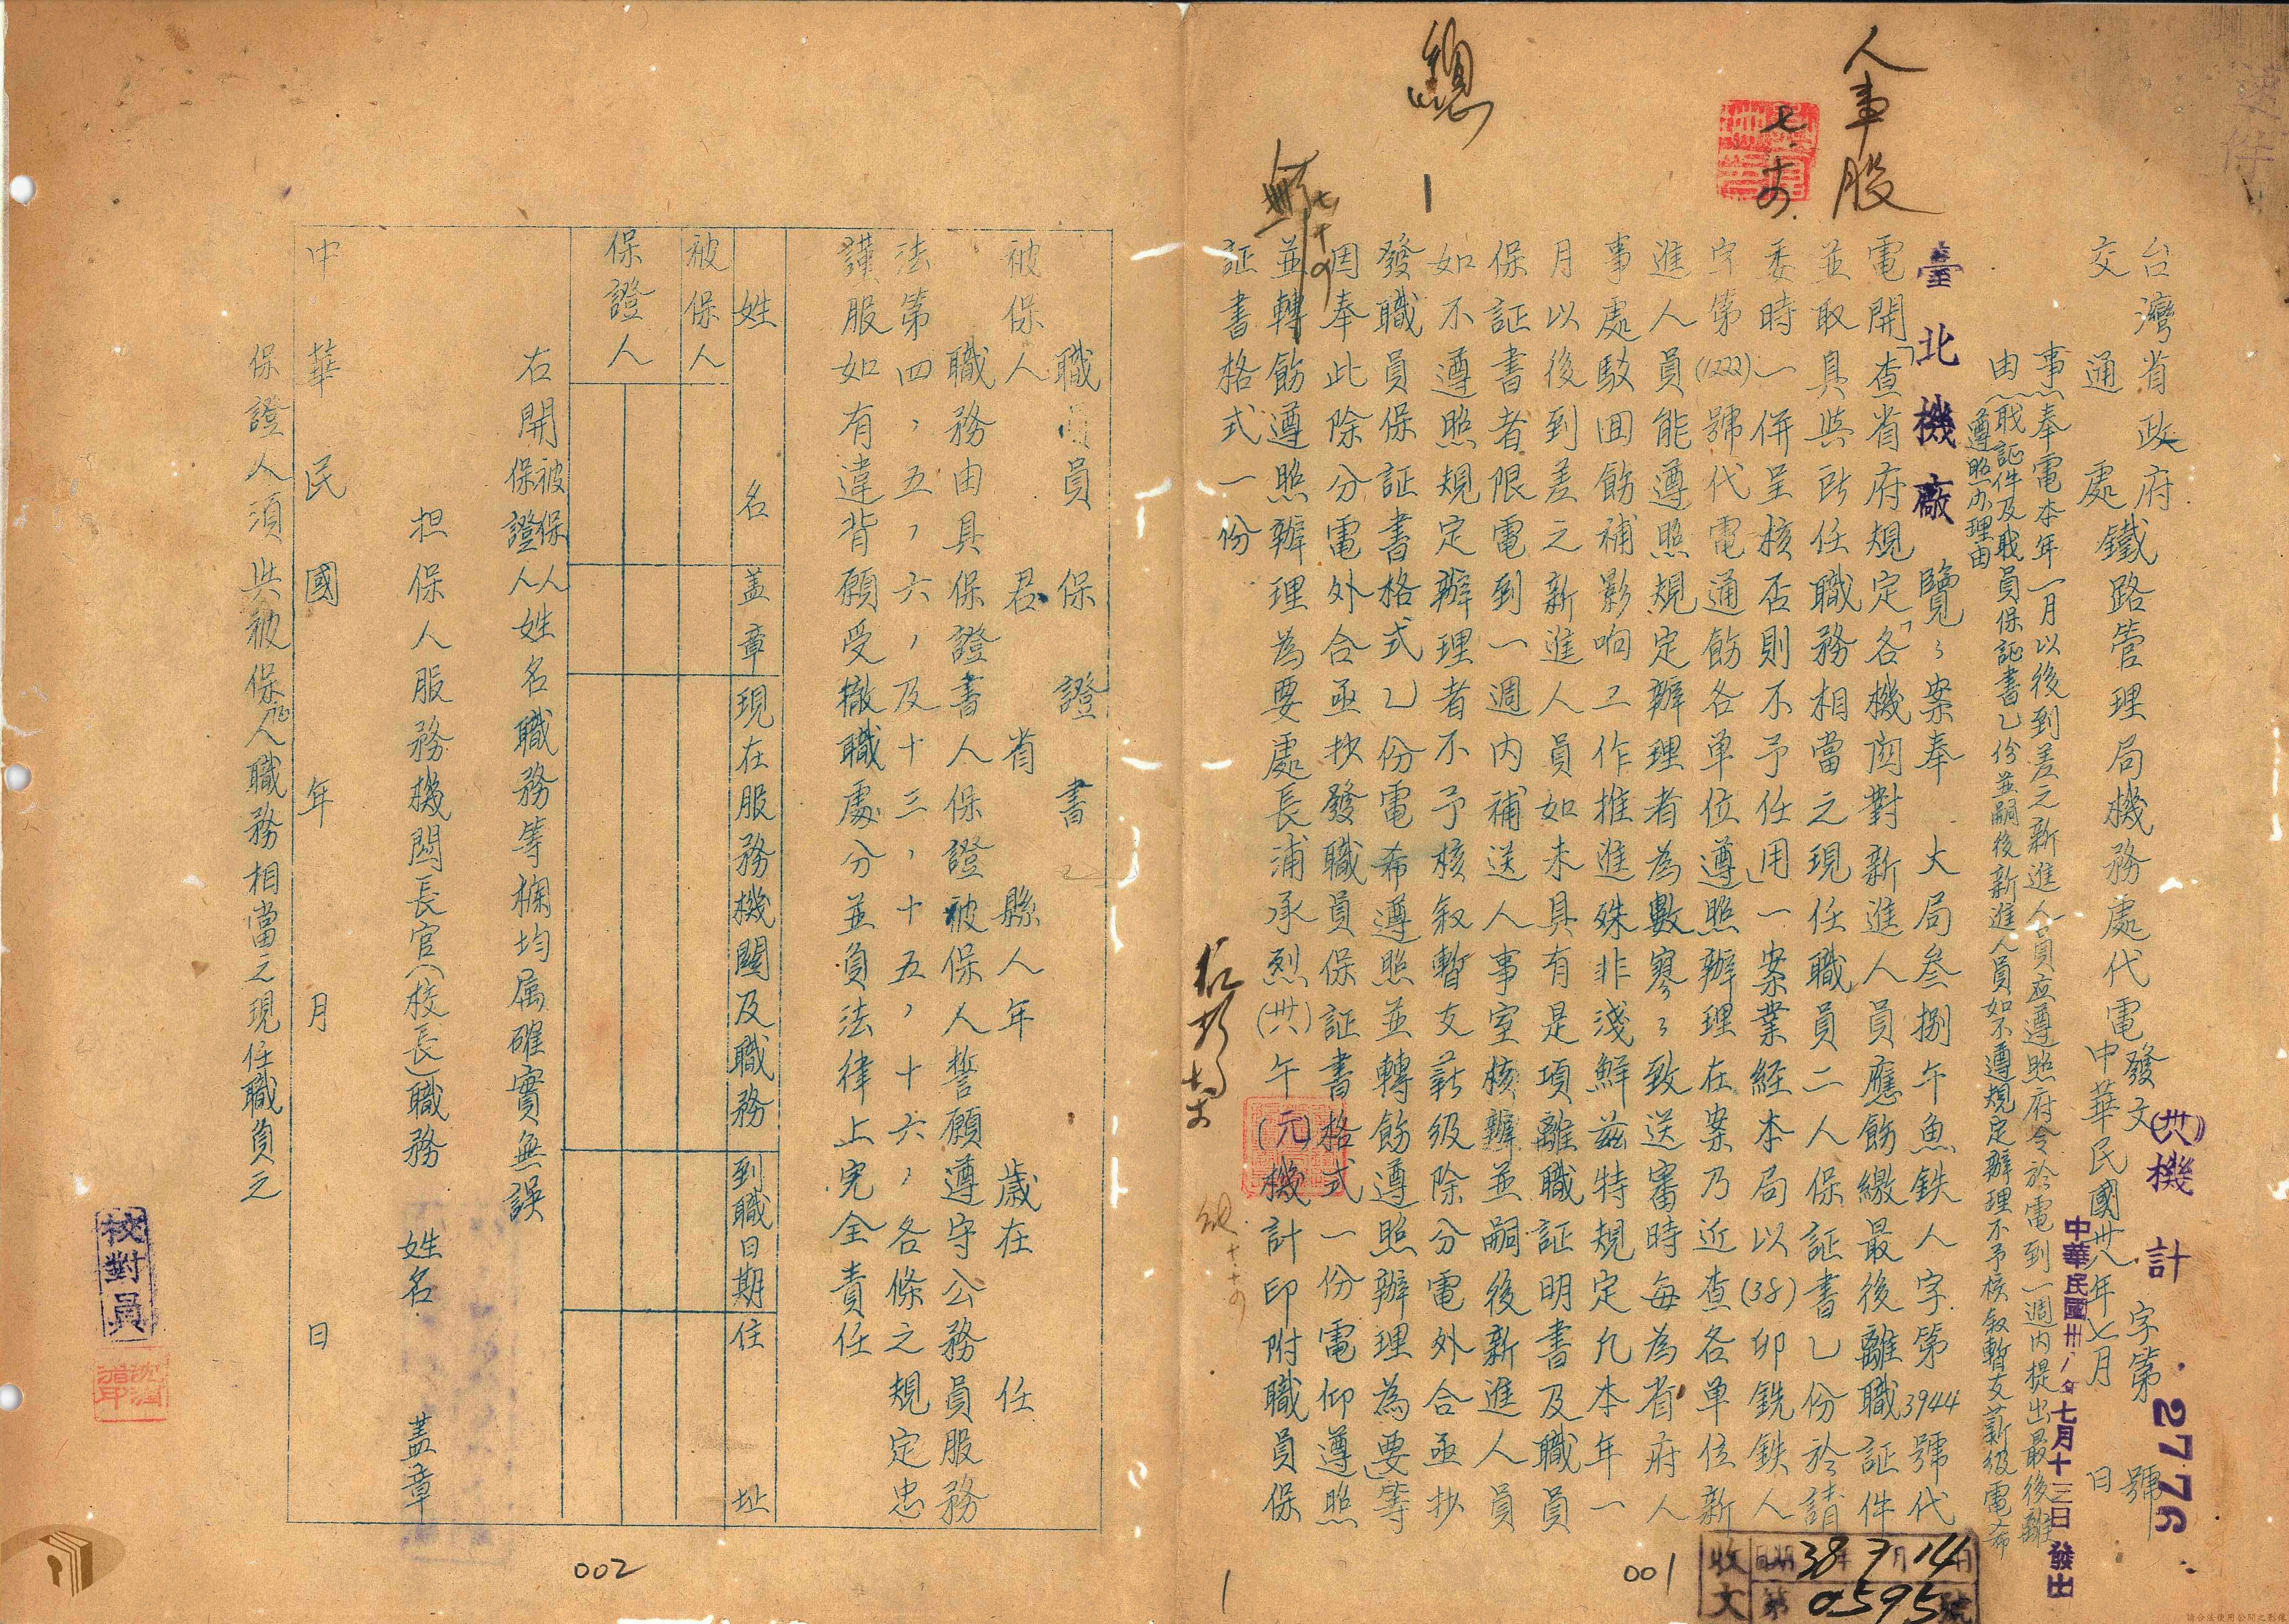 人事股
七.十四.
總
台灣省政府
交通處
鐵路管理局機務處代電
發文
(卅八)機計字第2776號
中華民國卅八年七月 日
中華民國卅八年七月十三日發出
事由
奉電本年一月以後到差之新進人員应遵照府令於電到一週內提出最後離
職証件及職員保証書乙份並嗣後新進人員如不遵規定辦理不予核叙暫支薪級電希
遵照办理由
臺北機廠覽:案奉 大局叁捌午魚鉄人字第3944號代
電開「查省府規定「各機関對新進人員應飭繳最後離職証件
並取具與所任職務相當之現任職員二人保証書乙份於請
委時一併呈核否則不予任用」一案業経本局以(38)卯銑鉄人
字第(1222)號代電通飭各单位遵照辦理在案乃近查各单位新
進人員能遵照規定辦理者為數寥〻致送審時每為省府人
事處駁囬飭補影响工作推進殊非淺鮮茲特規定凡本年一
月以後到差之新進人員如未具有是項離職証明書及職員
保証書者限電到一週內補送人事室核辦並嗣後新進人員
如不遵照規定辦理者不予核叙暫支薪級除分電外合亟抄
發職員保証書格式乙份電希遵照並轉飭遵照辦理為要」等
因奉此除分電外合亟抄發職員保証書格式一份電仰遵照
並轉飭遵照辦理為要處長浦承烈(卅八)午(元)機計印附職員保
証書格式一份
收文
日期38年7月14日
第0595號
001
職員保證書
被保人 君 省 縣人年 歲在 任
職務由具保證書人保證被保人誓願遵守公務員服務
法第四,五,六,及十三,十五,十六,各條之規定忠
謹服如有違背願受撤職處分並負法律上完全責任
姓名 盖章 現在服務機關及職務 到職日期 住址
被保人
保證人
右開被保人保證人姓名職務等欄均属確實無誤
担保人服務機関長官(校長)職務 姓名 蓋章
中華民國 年 月 日
保證人須與被保人職務相當之現任職員之
校對員
002